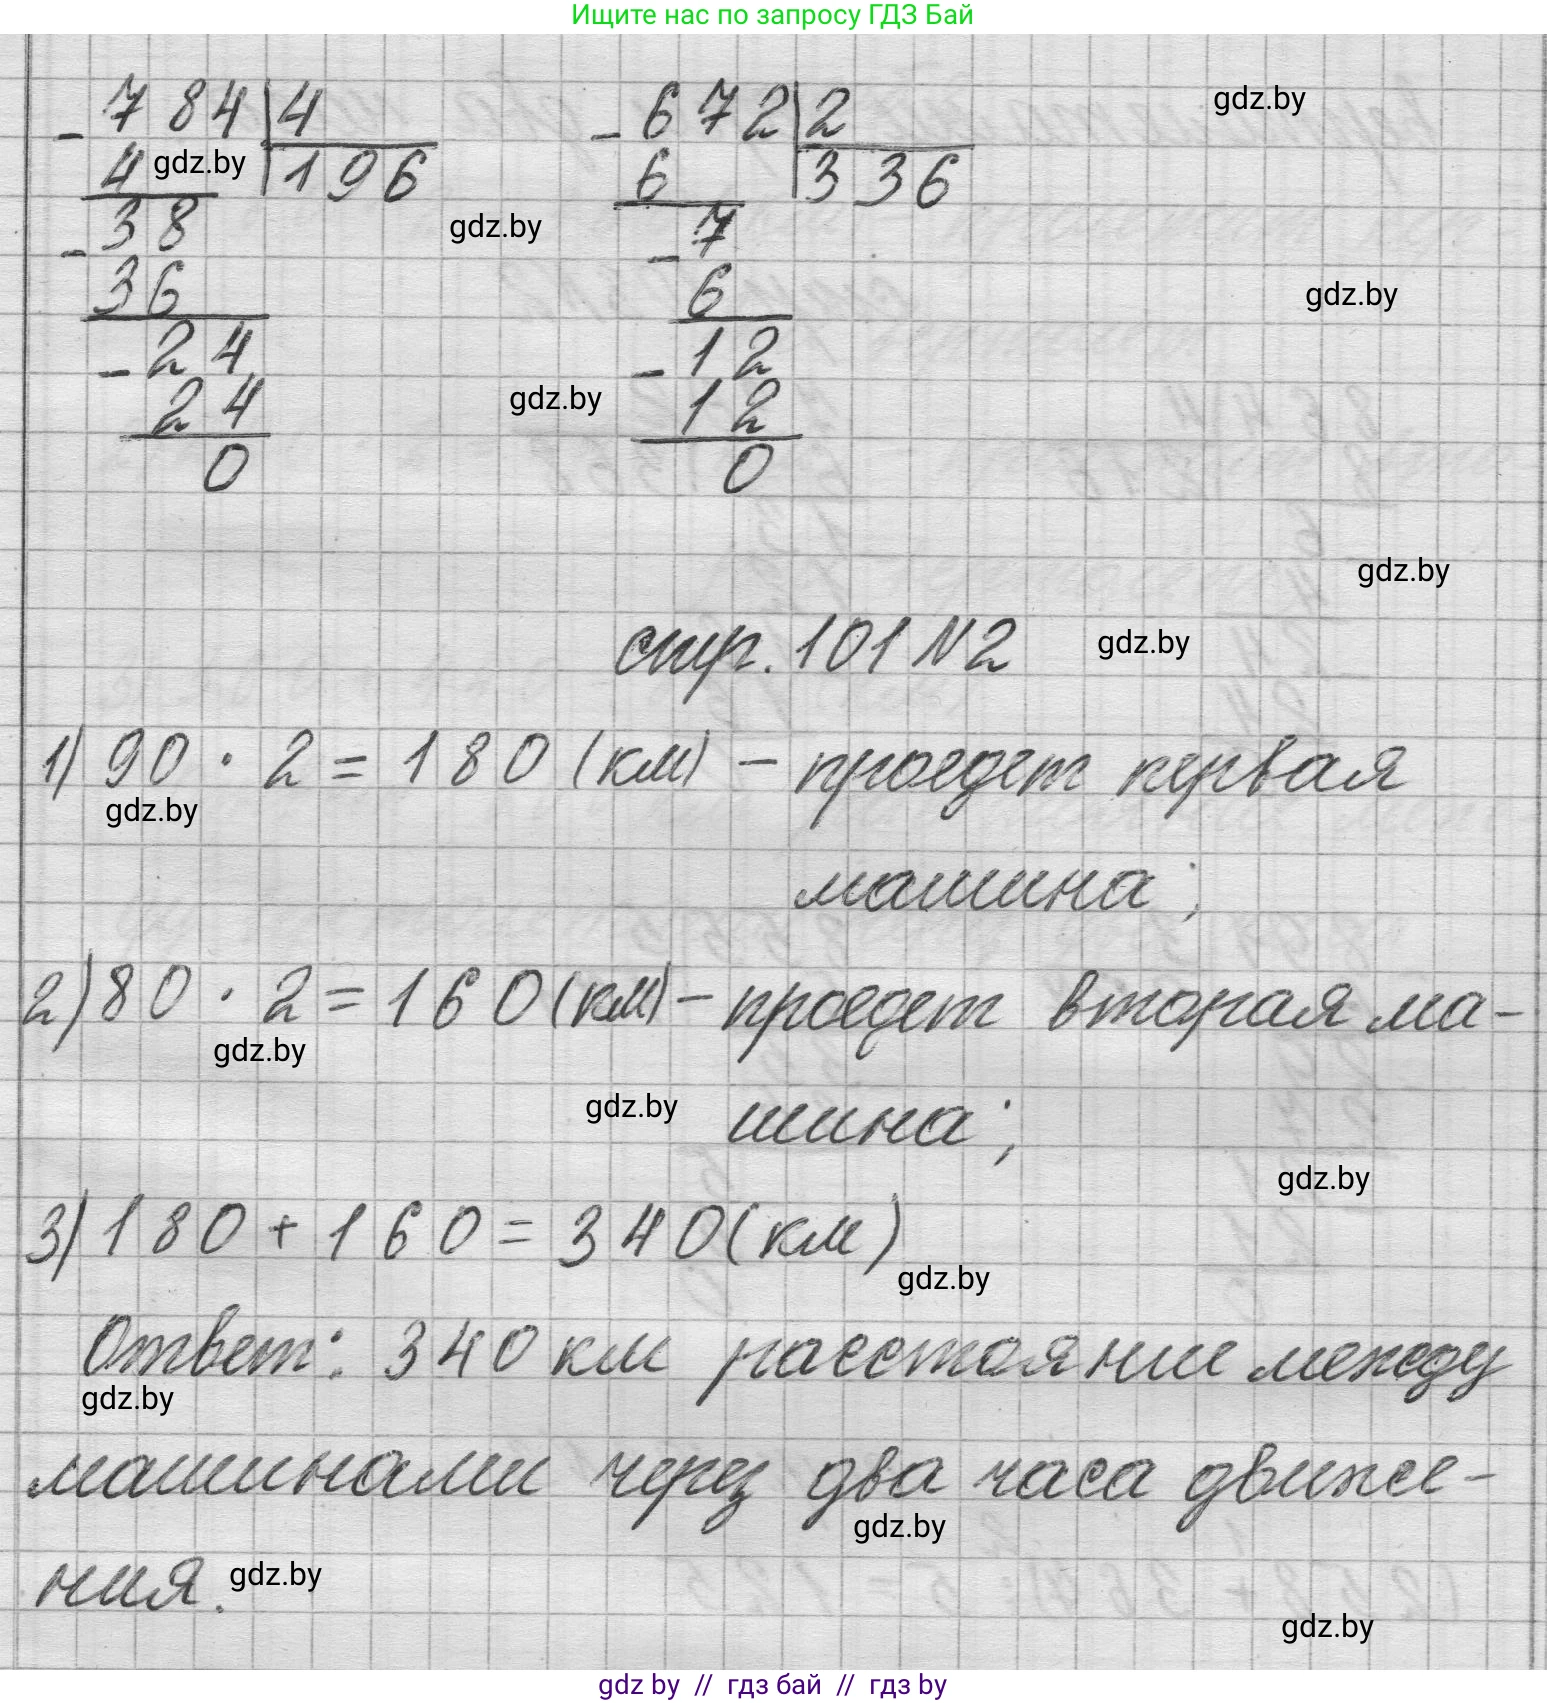 Ищите нас по запросу ГДЗ Бай
784 | 4
- 4 gdz.by 196
- 38
36
- 24
24
0
- 672 | 2
6 336
- 7
6
- 12
12
0
gdz.by
gdz.by
gdz.by
gdz.by
gdz.by
стр. 101 N2 gdz.by
1) 90 · 2 = 180 (км) - проедет первая
gdz.by
машина;
2) 80 · 2 = 160 (км) - проедет вторая ма-
gdz.by
gdz.by шина;
gdz.by
3) 180 + 160 = 340 (км)
gdz.by
Ответ: 340 км расстояние между
gdz.by
машинами через два часа движе-
gdz.by
ния. gdz.by
gdz.by
gdz by // гдз бай // гдз by